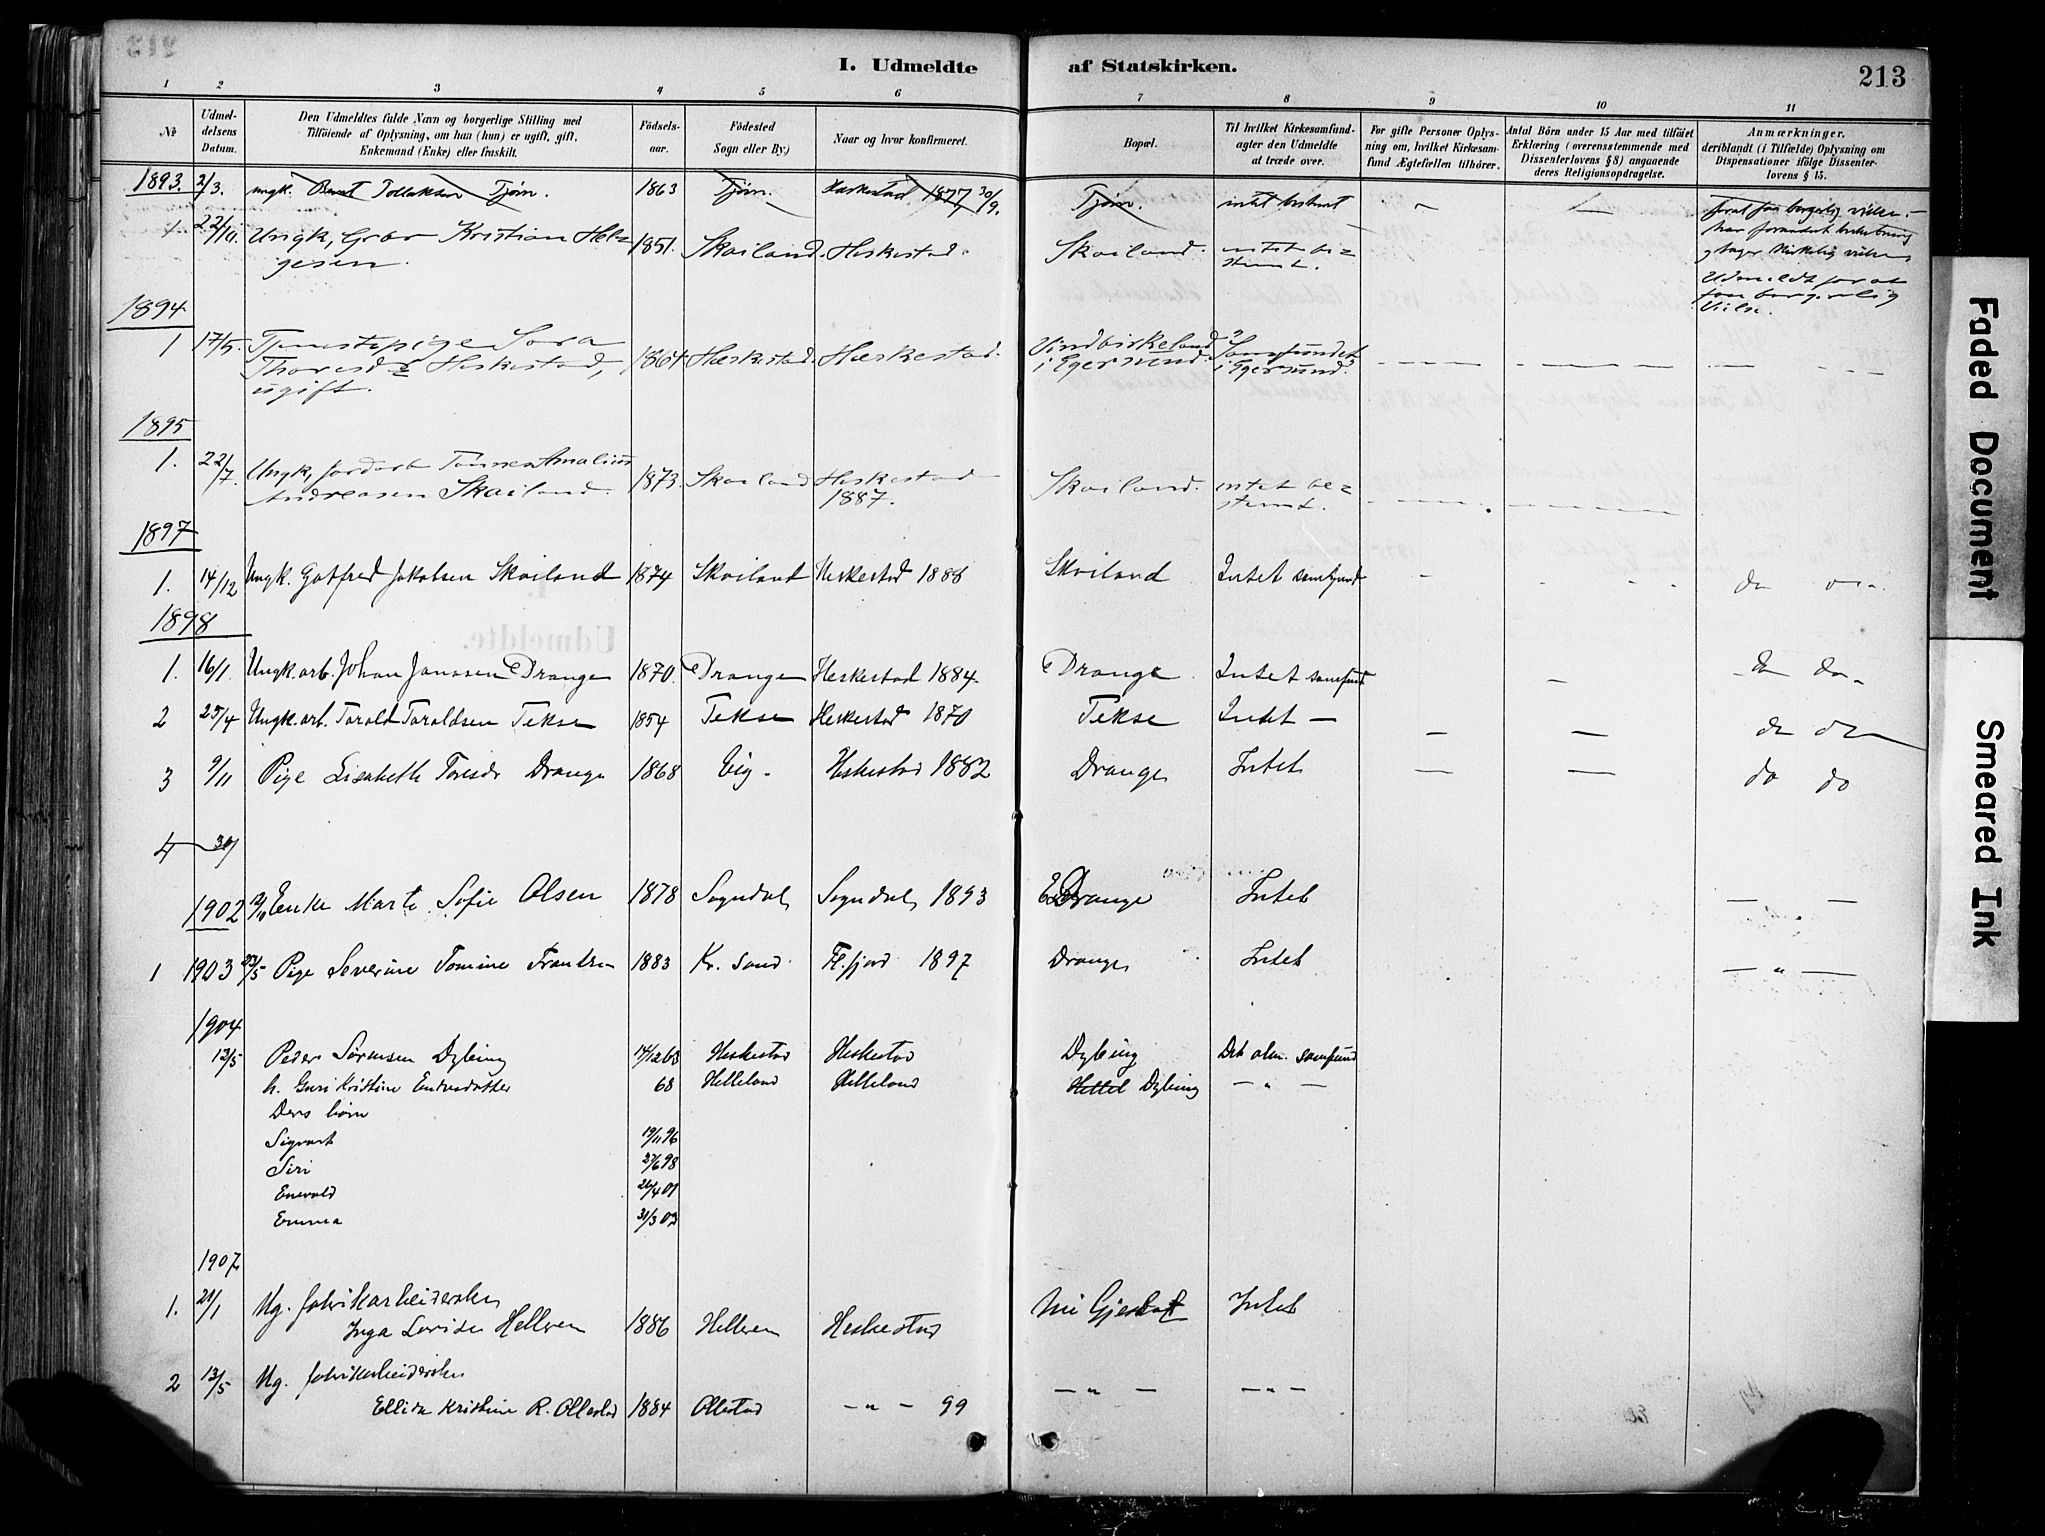 I. Udmeldte af Statskirken.
213
1 2 3 4 5 6 7 8 9 10 11
No
Udmel-
delsens
Datum.
Den Udmeldtes fulde Navn og borgerlige Stilling med
Tilføiende af Oplysning, om han (hun) er ugift, gift,
Enkemand (Enke) eller fraskilt.
Fødsels-
aar.
Fødested
Sogn eller By.)
Naar og hvor konfirmeret.
Bopæl.
Til hvilket Kirkesamfund-
agter den Udmeldte
at træde over.
For gifte Personer Oplys-
ning om, hvilket Kirkesam-
fund Ægtefællen tilhører.
Antal Børn under 15 Aar med tilføiet
Erklæring (overensstemmende med
Dissenterlovens § 8) angaaende
deres Religionsopdragelse.
Anmærkninger,
deriblandt (i Tilfælde) Oplysning om
Dispensationer ifølge Dissenter-
lovens § 15.
1893. 2/3. ungk. Bernt Tollaksen Tjørn. 1863 Tjørn. Heskestad 1877 30/9. Tjørn. intet bestemt
forat faa borgerlig vielse.
har forandret beslutning
og tager kirkelig vielse
1. 22/10. Ungk, Gbr Kristian Hel=
gesen. 1851. Skailand. Heskestad. Skailand. intet be=
stemt.
Udmeldt for at
faa borgerlig
Vielse.
1894
1 17/5. Tjenestepige Sara
Thoresdr Heskestad,
ugift. 1864 Heskestad. Heskestad. Vindbirkeland
i Egersund. Samfundet
i Egersund.
1895
1. 22/7. Ungk, Tønnes Amalius
Andreasen Skailand. 1873. Skailand Heskestad
1887. Skailand. intet be=
stemt.
1897
1. 14/12 Ungk. Gotfred Jakobsen Skailand 1874 Skailand Heskestad 1888 Skailand Intet samfund do do
1898
1. 16/1. Ungk. arb. Johan Janssen Drange 1870. Drange Heskestad 1884 Drange Intet samfund do do
2 25/4 Ungk. arb. Torald Toraldsen Tekse 1854 Tekse Heskestad 1870 Tekse Intet — do do
3 9/11 Pige Lisabeth Toresdr Drange 1868 Eig. Heskestad 1882 Drange Intet do do
4 30/
1902 Enke Marte Sofie Olsen 1878 Sogndal Sogndal 1893 Drange Intet — " —
1 1903 23/5 Pige Severine Tomine Frantzen 1883 Kr. sand Fl.fjord 1897 Drange Intet — " —
1904
13/5 Peder Sørensen Dybing 14/12 68 Heskestad Heskestad Dybing Det alm. samfund
h. Guri Kristine Enevadatter 68 Helleland Helleland Dybing — " —
Ders børn
Sigvart 19/11 96
Siri 27/6 98
Enevald 26/4 01
Emma 31/3 03
1907
1. 21/1 Ug. fabrikarbeiderske
Inga Lovise Hellven 1886 Hellven Heskestad Aai Gjesdal Intet
2 13/5 Ug. fabrikarbeiderske
Ellida Kristine R. Ollestad 1884 Ollestad — " — 99 — " — — " —
Faded Document
Smeared Ink